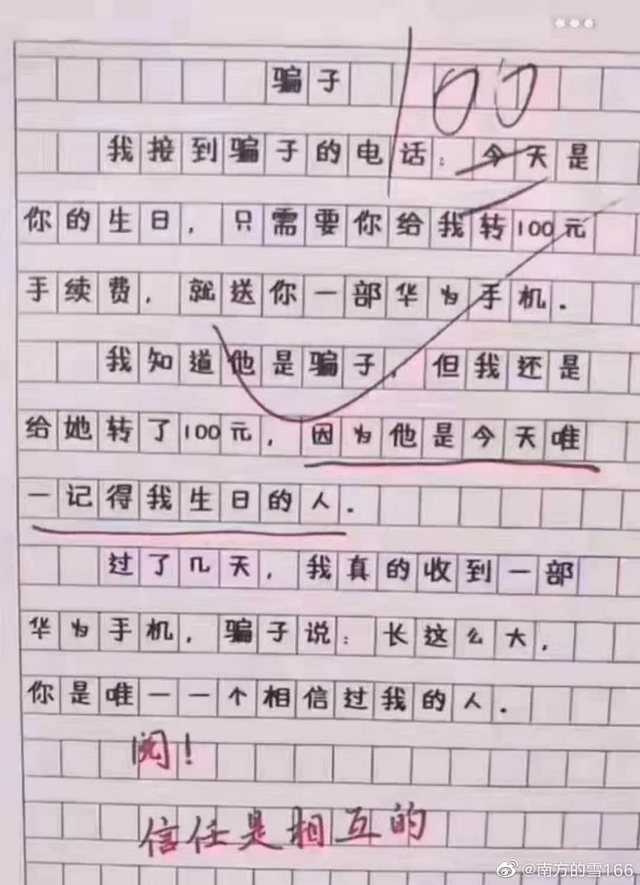 骗子
100
我接到骗子的电话：今天是
你的生日，只需要你给我转100元
手续费，就送你一部华为手机.
我知道他是骗子，但我还是
给她转了100元，因为他是今天唯
一记得我生日的人.
过了几天，我真的收到一部
华为手机，骗子说：长这么大，
你是唯一一个相信过我的人.
阅!
信任是相互的
@南方的雪166